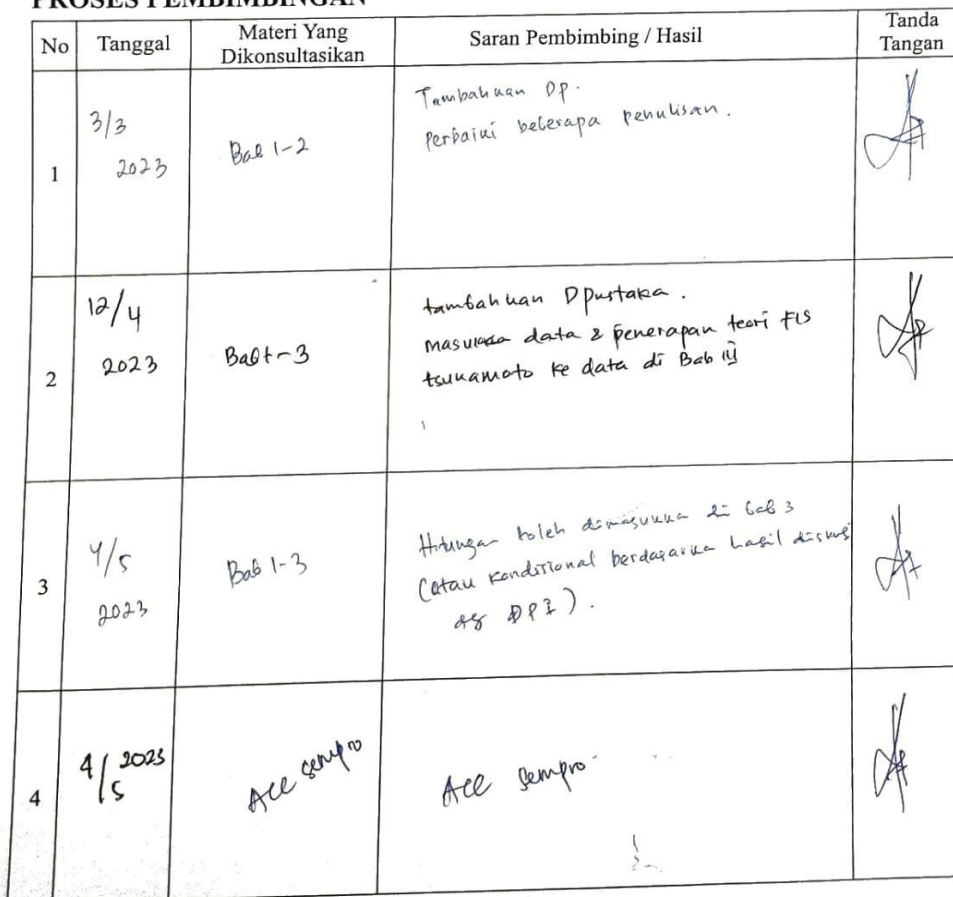 PROSES PEMBIMBINGAN
No Tanggal Materi Yang Dikonsultasikan Saran Pembimbing / Hasil Tanda Tangan
1
3/3
2023
Bab 1-2
Tambahkan DP.
Perbaiki beberapa penulisan.
2
12/4
2023
Bab 1-3
tambahkan D pustaka.
data & penerapan teori FIS
tsunamoto ke data di Bab III
3
4/5
2023
Bab 1-3
Hitungan boleh dimasukka di bab 3
(atau kondisional berdasarka hasil diskusi
dg DP I).
4
4/5 2023
Acc sempro
Acc sempro